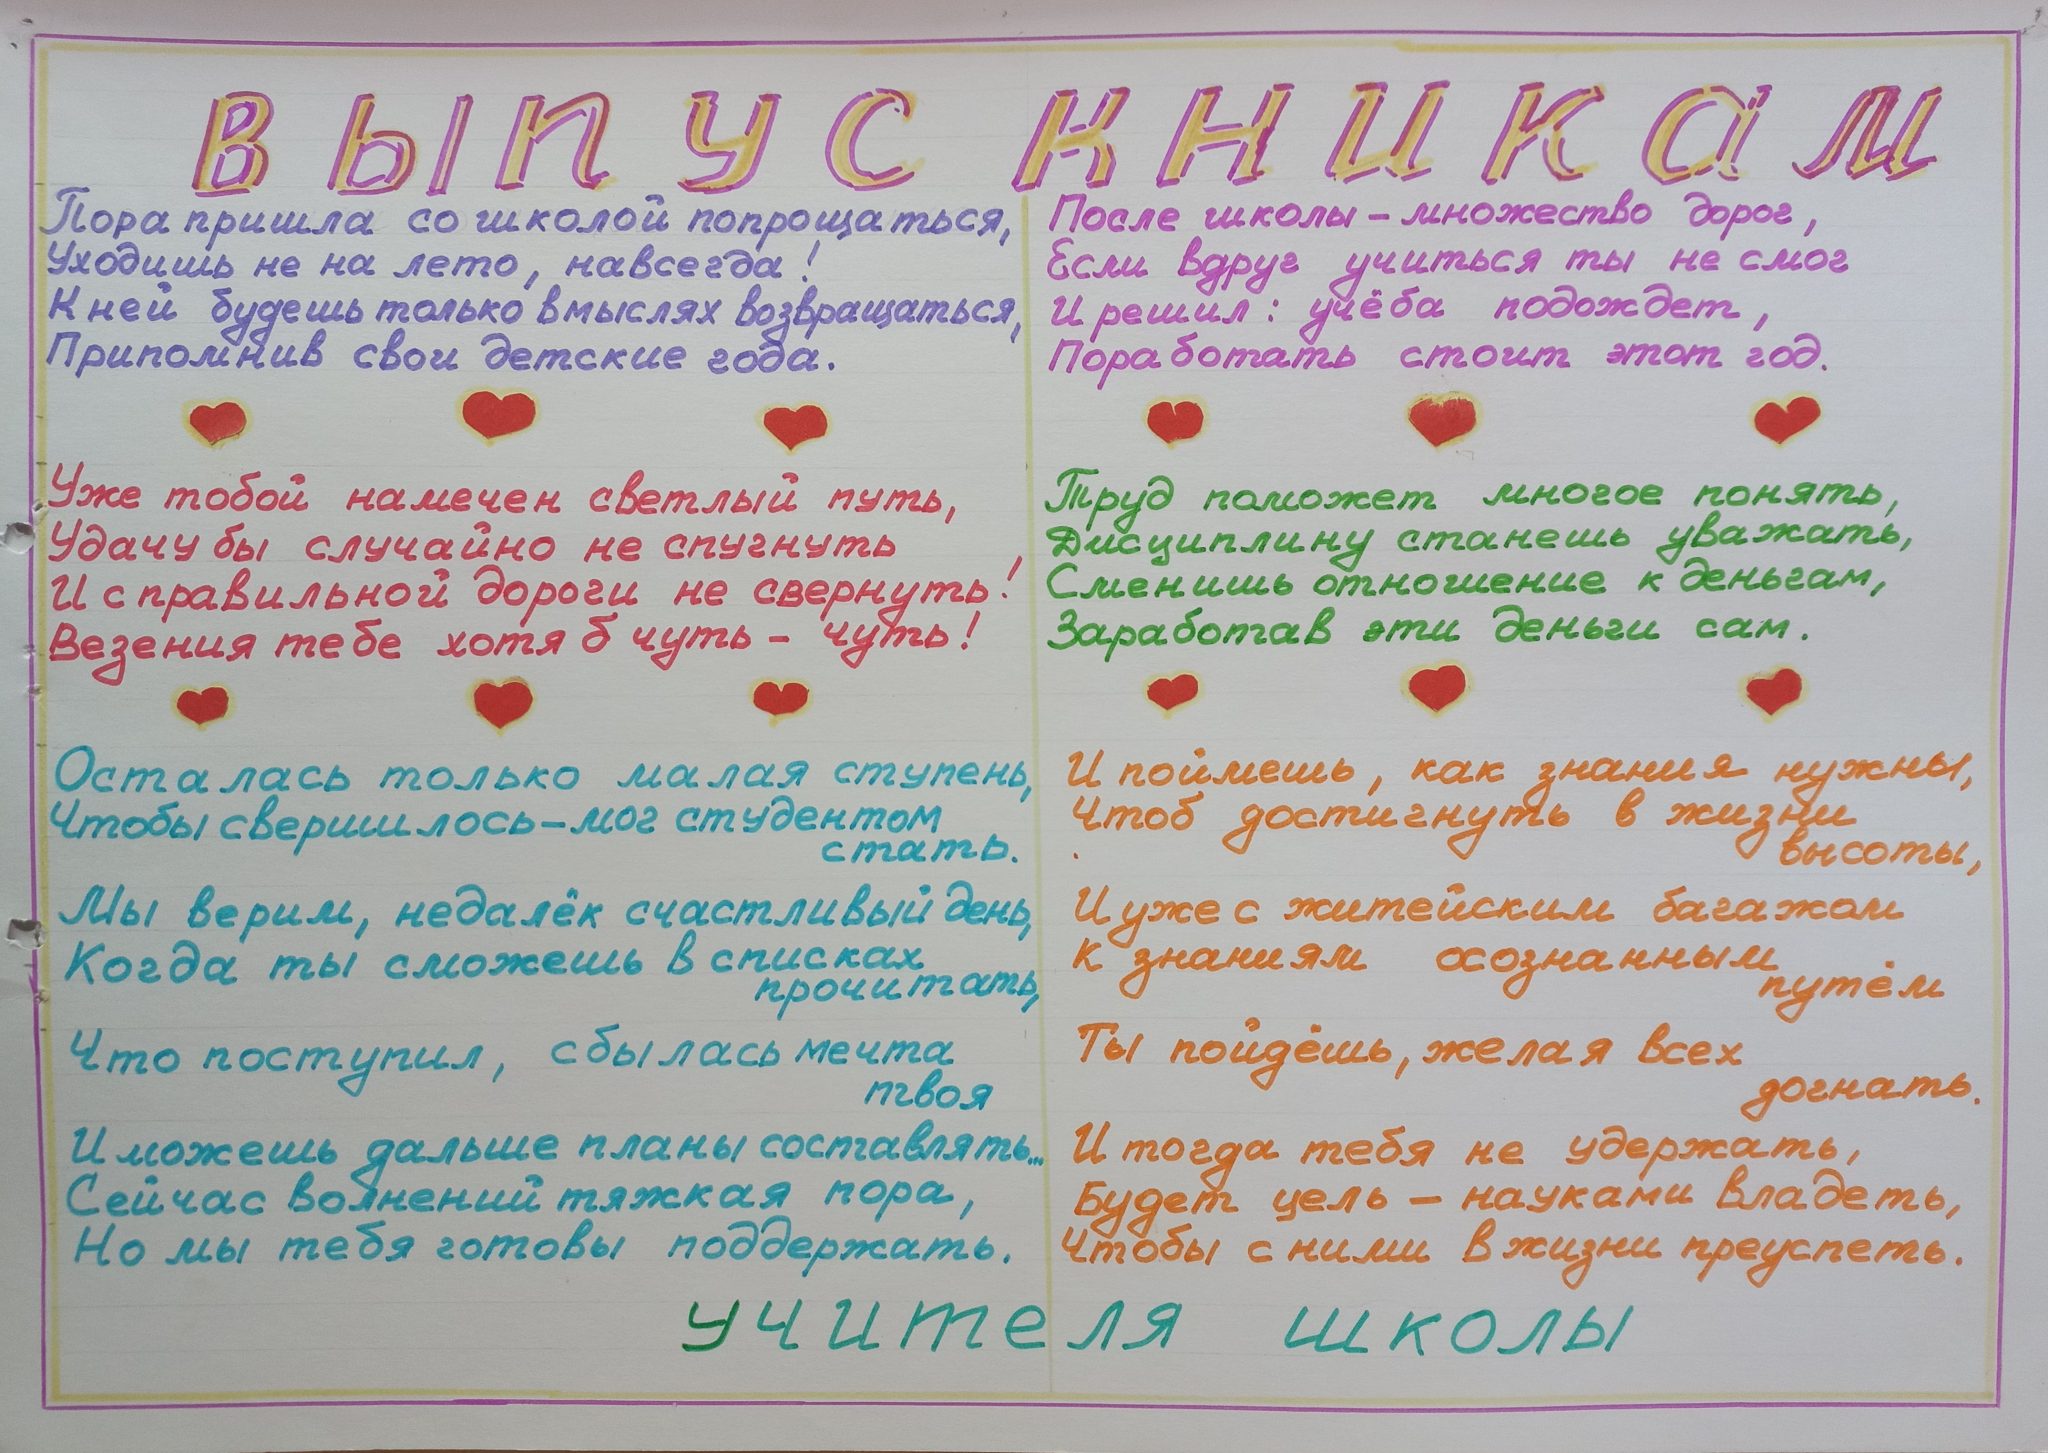 ВЫПУСКНИКАМ
Пора пришла со школой попрощаться,
Уходишь не на лето, навсегда!
К ней будешь только в мыслях возвращаться,
Припомнив свои детские года.
Уже тобой намечен светлый путь,
Удачу бы случайно не спугнуть
И с правильной дороги не свернуть!
Везения тебе хотя б чуть - чуть!
Осталась только малая ступень,
Чтобы свершилось – мог студентом
стать.
Мы верим, недалёк счастливый день,
Когда ты сможешь в списках
прочитать,
Что поступил, сбылась мечта
твоя
И можешь дальше планы составлять...
Сейчас волнений тяжкая пора,
Но мы тебя готовы поддержать.
После школы – множество дорог,
Если вдруг учиться ты не смог
И решил: учёба подождет,
Поработать стоит этот год.
Труд поможет многое понять,
Дисциплину станешь уважать,
Сменишь отношение к деньгам,
Заработав эти деньги сам.
И поймешь, как знания нужны,
Чтоб достигнуть в жизни
высоты,
И уже с житейским багажом
К знаниям осознанным
путём
Ты пойдёшь, желая всех
догнать.
И тогда тебя не удержать,
Будет цель – науками владеть,
Чтобы с ними в жизни преуспеть.
учителя школы